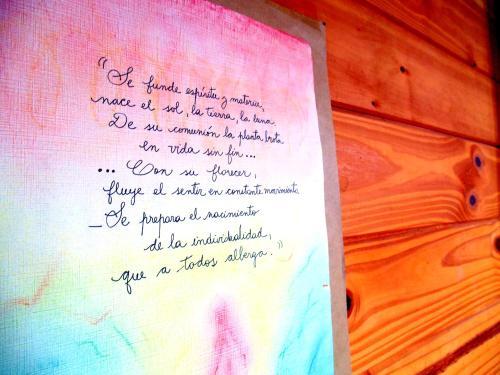 "Se funde espíritu y materia,
nace el sol, la tierra, la luna
De su comunión la planta brota
en vida sin fin...
... Con su florecer,
fluye el sentir en constante movimiento
_Se prepara el nacimiento
de la individualidad,
que a todos alberga."